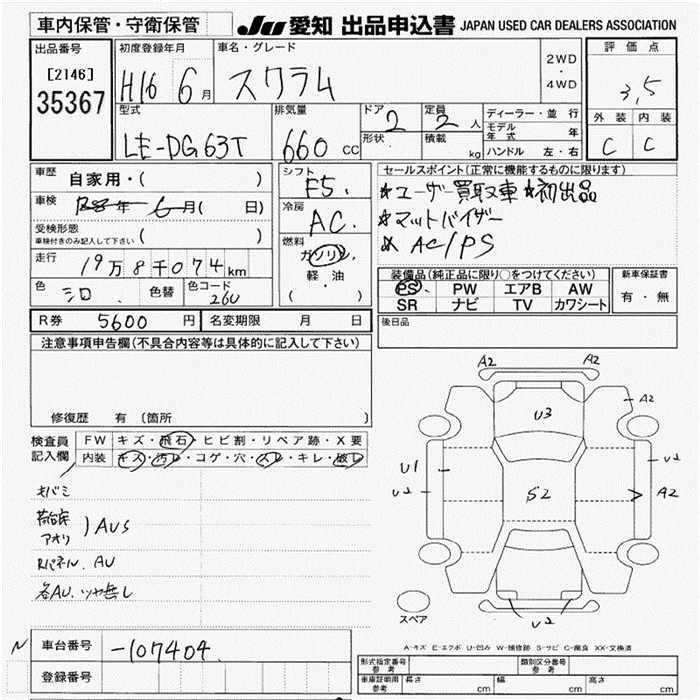 車内保管・守衛保管
JU 愛知 出品申込書 JAPAN USED CAR DEALERS ASSOCIATION
出品番号
[2146]
35367
初度登録年月
H16 6月
車名・グレード
スクラム
2WD
・
4WD
評価点
3.5
外装 内装
C C
型式
LE-DG63T
排気量
660 CC
ドア
2
形状
定員
2人
積載
kg
ディーラー・並行
モデル年式 年
ハンドル 左・右
車歴
自家用・( )
車検
R8年 6月( 日)
受検形態
車検付きのみ記入して下さい ( )
走行
19万8千074km
色
シロ
色替
色コード
26U
シフト
F5.
冷房
AC.
燃料
ガソリン
軽・油
( )
セールスポイント(正常に機能するものに限ります)
★ユーザー買取車 ★初出品
★マットバイザー
★ AC/PS
装備品(純正品に限り○をつけてください)
PS PW エアB AW
SR ナビ TV カワシート
新車保証書
有・無
R券 5600 円
名変期限 月 日
後日品
注意事項申告欄(不具合内容等は具体的に記入して下さい)
修復歴 有(箇所
検査員記入欄
FW キズ・飛石・ヒビ割・リペア跡・X要
内装 キズ・汚レ・コゲ・穴・スレ・キレ・破レ
荷台床
アオリ )AUS
Rパネル. AU
各AU. ツヤ無し
A2 A2
A2
U3
U1
U2
S2
U2
A2
U2
スペア
A-キズ E-エクボ U-凹み W-補修跡 S-サビ C-腐食 XX-交換済
N 車台番号 -107404.
登録番号
形式指定番号
参考
類別区分番号
参考
車庫証明用
参考
長さ cm 幅 cm 高さ cm